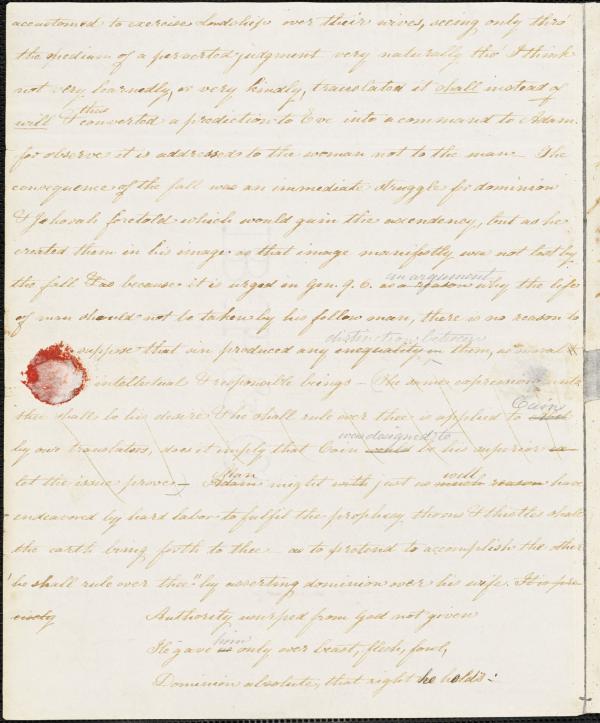 accustomed to exercise Lordship over their wives, seeing only thro'
the medium of a perverted judgment very naturally tho' I think
not very learnedly, or very kindly, translated it shall instead of
will & thus converted a prediction to Eve into a command to Adam.
for observe it is addressed to the woman not to the man— The
consequence of the fall was an immediate struggle for dominion
& Jehovah foretold which would gain the ascendency, but as he
created them in his image as that image manifestly was not lost by
the fall & as because it is urged in Gen. 9. 6. as a reason an argument why the life
of man should not be taken by his fellow man, there is no reason to
suppose that sin produced any inequality in distinction between them, as moral
intellectual & responsible beings— The same expression unto
thee shall be his desire & he shall rule over thee is applied to Cain
by our translators, does it imply that Cain was designed to be his superior
let the issue prove— Adam Man might with just as much reason well have
endeavored by hard labor to fulfil the prophesy thorns & thistles shall
the earth bring forth to thee— as to pretend to accomplish the other
"he shall rule over thee" by asserting dominion over his wife. It is pre
cisely
Authority usurped from God not given
He gave him only over beast, flesh, fowl,
Dominion absolute, that right he holds: